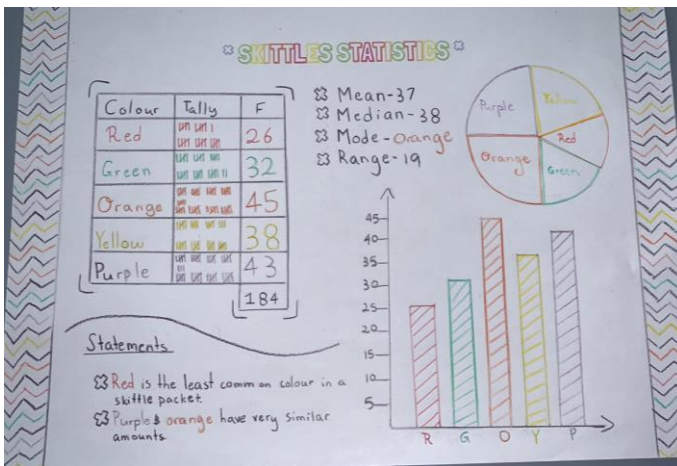 SKITTLES STATISTICS
Colour Tally F
Red 26
Green 32
Orange 45
Yellow 38
Purple 43
184
Mean-37
Median-38
Mode-Orange
Range-19
Purple
Yellow
Red
Orange
Green
45
40
35
30
25
20
15
10
5
R G O Y P
Statements
Red is the least common colour in a
skittle packet
Purple & orange have very similar
amounts